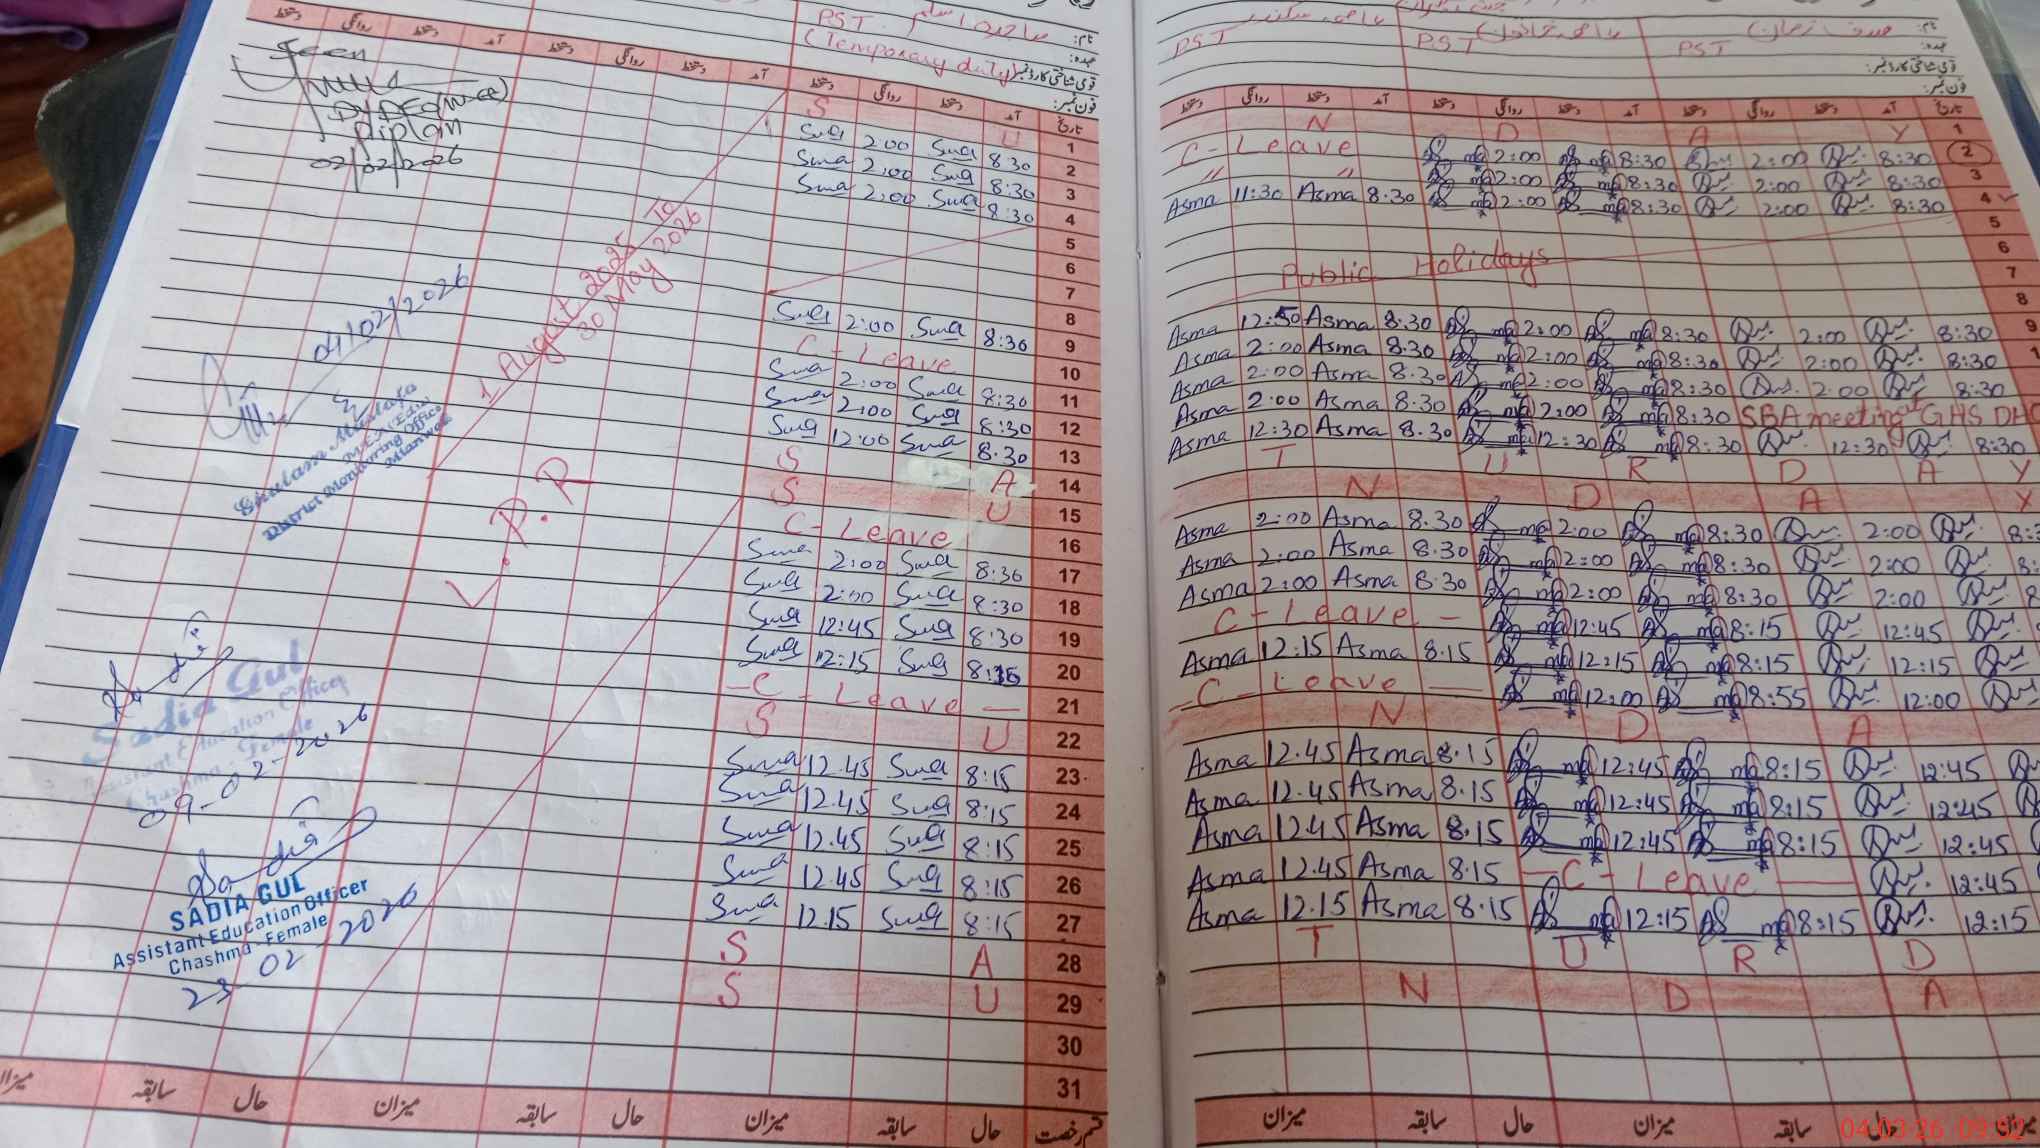 PST. صابرہ اسلم
(Temporary duty)
قومی شناختی کارڈ نمبر:
فون نمبر:
دستخط روانگی دستخط آمد دستخط روانگی دستخط آمد دستخط روانگی دستخط آمد تاریخ
Seen
DY DEO (W-EE)
Piplan
02/02/2026
S U 1
Swa 2:00 Swa 8:30 2
Swa 2:00 Swa 8:30 3
Swa 2:00 Swa 8:30 4
5
6
7
8
Swa 2:00 Swa 8:30 9
C - Leave 10
Swa 2:00 Swa 8:30 11
Swa 2:00 Swa 8:30 12
Swa 12:00 Swa 8.30 13
S A 14
S U 15
C - Leave 16
Swa 2:00 Swa 8:30 17
Swa 2:00 Swa 8:30 18
Swa 12:45 Swa 8:30 19
Swa 12:15 Swa 8:15 20
- C - Leave - 21
S U 22
Swa 12.45 Swa 8:15 23
Swa 12.45 Swa 8:15 24
Swa 12.45 Swa 8:15 25
Swa 12.45 Swa 8:15 26
Swa 12.15 Swa 8:15 27
S A 28
S U 29
30
31
1 August 2025
To
30 May 2026
L.P.R
04/02/2026
Ghulam Mustafa
District Monitoring Officer
Mianwali
Sadia Gul
Assistant Education Officer
Chashma - Female
09-02-2026
Sadia
SADIA GUL
Assistant Education Officer
Chashma - Female
23-02-2026
میزان سابقہ حال میزان سابقہ حال میزان سابقہ حال قسم رخصت
نام:
عہدہ:
PST PST PST
قومی شناختی کارڈ نمبر:
فون نمبر:
دستخط روانگی دستخط آمد دستخط روانگی دستخط آمد دستخط روانگی دستخط آمد تاریخ
N D A Y 1
C - Leave 2:00 8:30 2:00 8:30 2
" " 2:00 8:30 2:00 8:30 3
Asma 11:30 Asma 8:30 2:00 8:30 2:00 8:30 4
5
6
Public Holidays 7
8
Asma 12:50 Asma 8.30 2:00 8:30 2:00 8:30 9
Asma 2:00 Asma 8.30 2:00 8:30 2:00 8:30
Asma 2:00 Asma 8:30 2:00 8:30 2:00 8:30
Asma 2:00 Asma 8.30 2:00 8:30 SBA meeting GHS
Asma 12:30 Asma 8.30 12:30 8:30 12:30 8:30
T U R D A Y
N D A Y
Asma 2:00 Asma 8.30 2:00 8:30 2:00
Asma 2:00 Asma 8:30 2:00 8:30 2:00
Asma 2:00 Asma 8.30 2:00 8:30 2:00
C - Leave - 12:45 8:15 12:45
Asma 12:15 Asma 8.15 12:15 8:15 12:15
- C - Leave - 12:00 8:55 12:00
N D A
Asma 12.45 Asma 8.15 12:45 8:15 12:45
Asma 12.45 Asma 8.15 12:45 8:15 12:45
Asma 12.45 Asma 8.15 12:45 8:15 12:45
Asma 12.45 Asma 8.15 - C - Leave - 12:45
Asma 12.15 Asma 8.15 12:15 8:15 12:15
T U R D
N D A
میزان سابقہ حال میزان سابقہ حال میزان